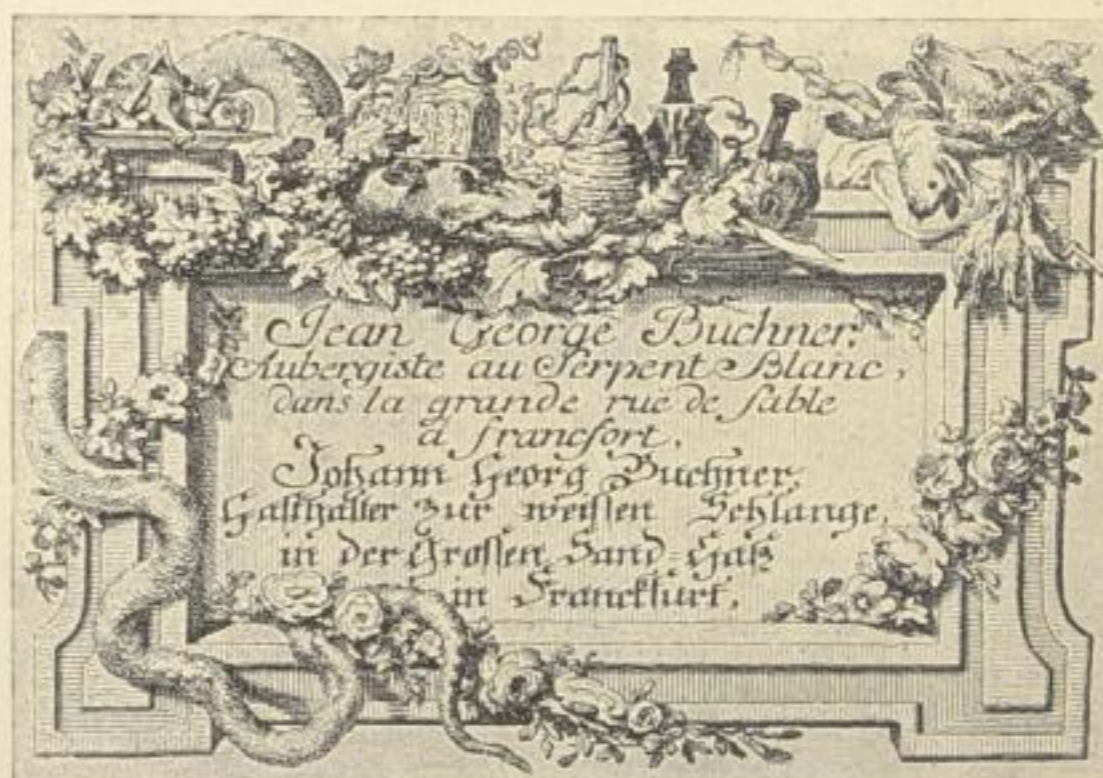 Jean George Buchner.
Aubergiste au Serpent Blanc,
dans la grande rue de sable
a francfort.
Johann Georg Buchner,
Gasthalter zur weissen Schlange,
in der Grossen Sand-Gaß
in Franckfurt.